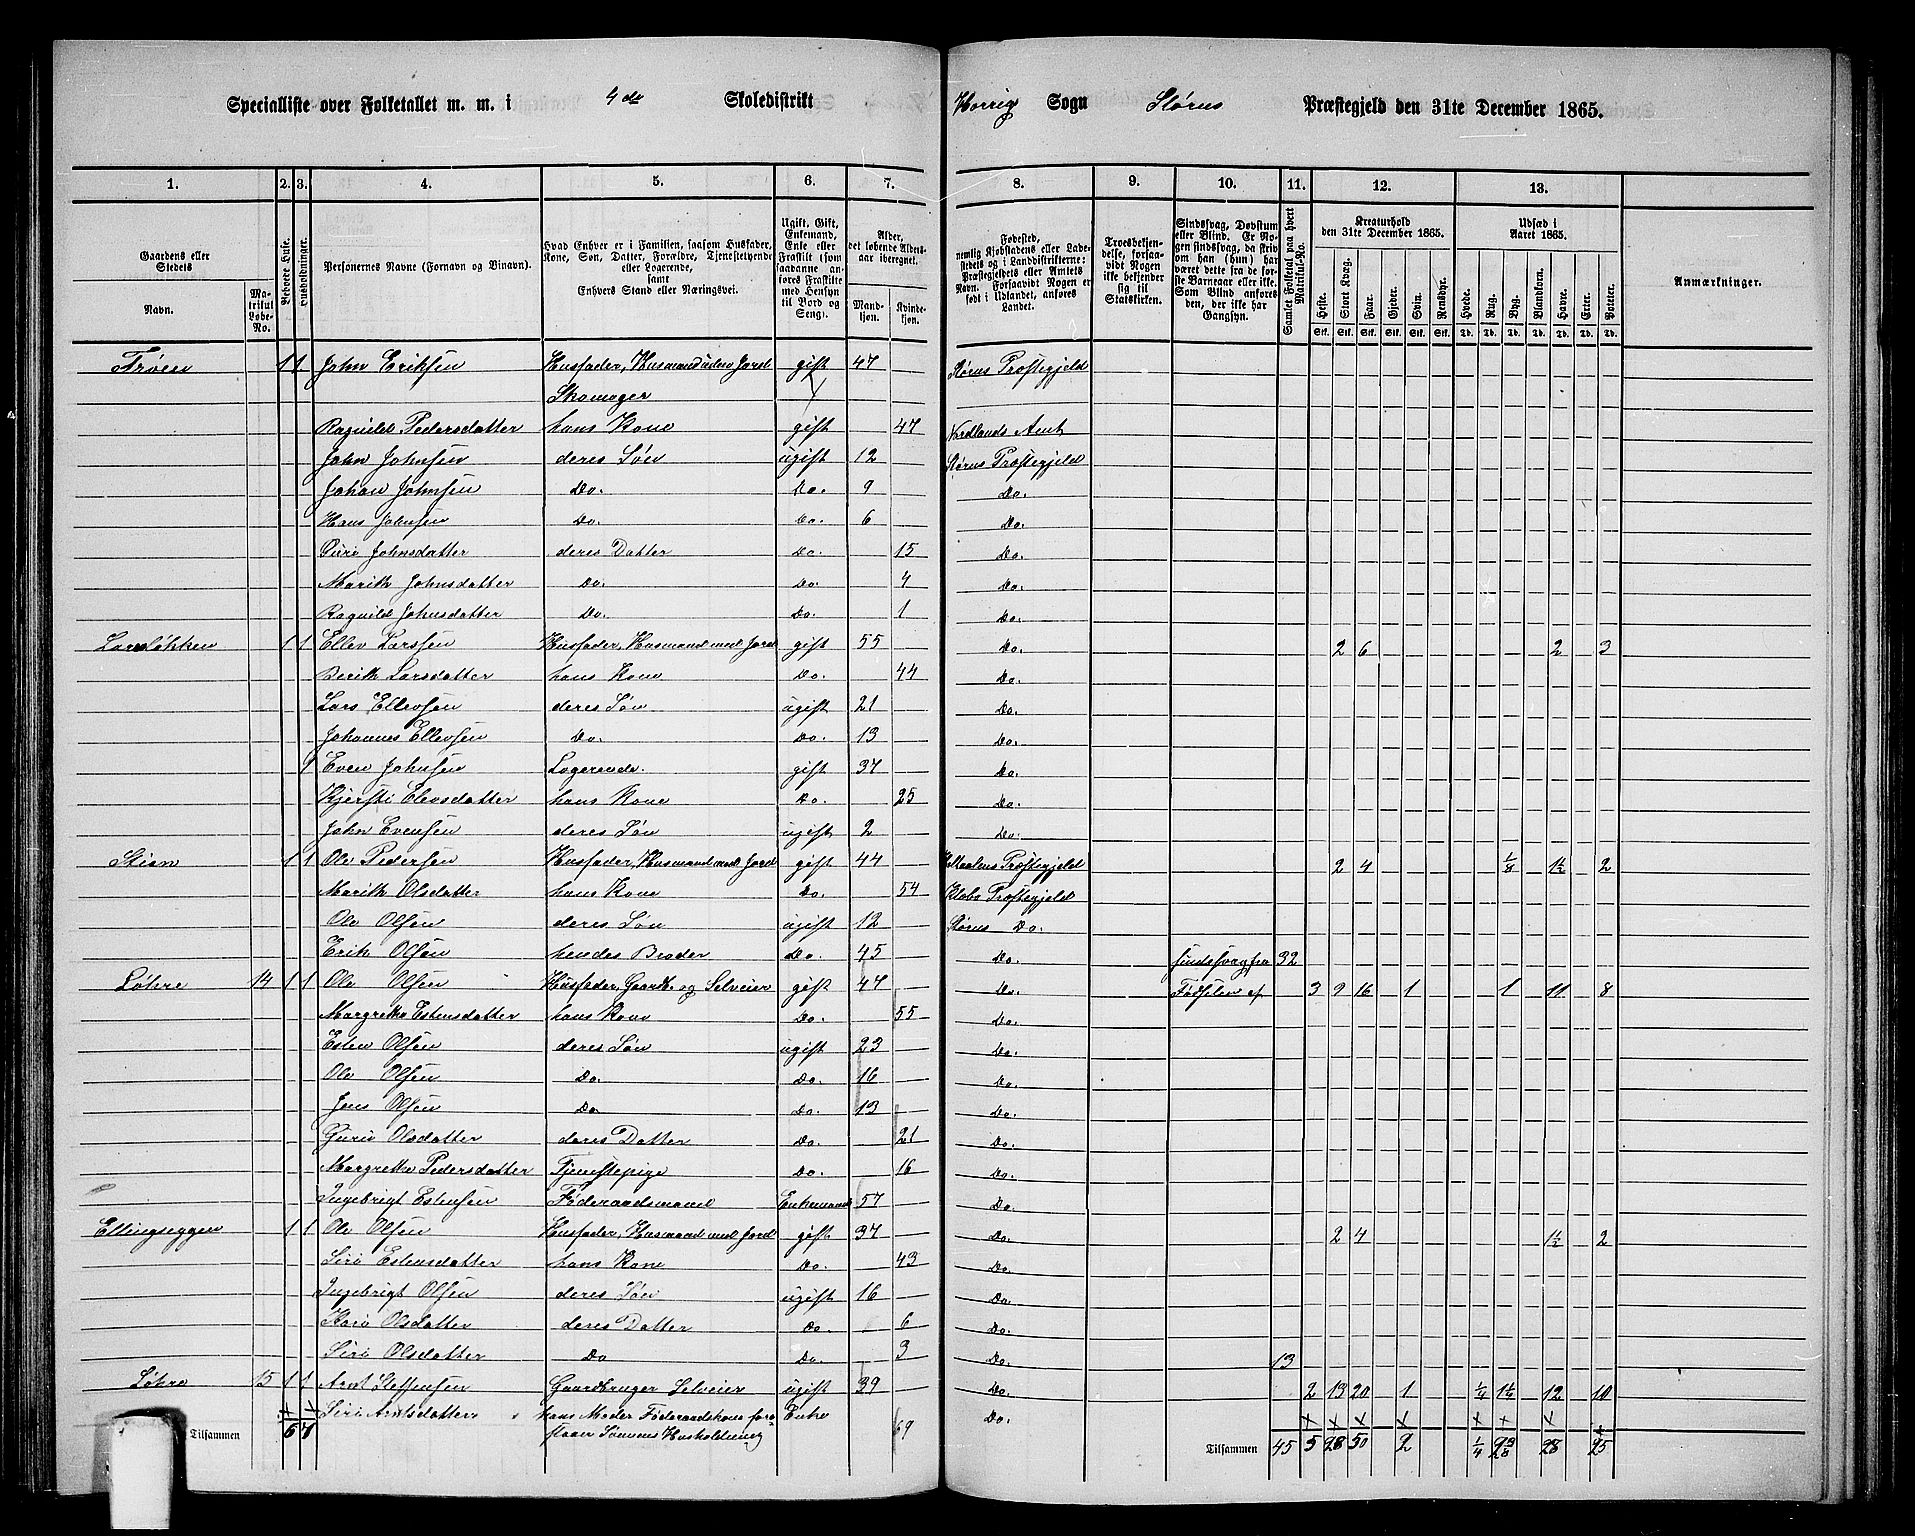 Specialliste over Folketallet m. m. i 4de Skoledistrikt Horrig Sogn Størens Præstegjeld den 31te December 1865.
1. 2. 3. 4. 5. 6. 7. 8. 9. 10. 11. 12. 13.
Gaardens eller Stedets
Navn. Matrikul Løbe-No.
Beboede Huse.
Husholdninger.
Personernes Navne (Fornavn og Binavn).
Hvad Enhver er i Familien, saasom Husfader, Kone, Søn, Datter, Forældre, Tjenestetyende eller Logerende, samt Enhvers Stand eller Næringsvei.
Ugift, Gift, Enkemand, Enke eller Fraskilt (som saadanne anføres Fraskilte med Hensyn til Bord og Seng).
Alder, det løbende Aldersaar iberegnet.
Mandkjøn. Kvindekjøn.
Fødested, nemlig Kjøbstadens eller Ladestedets og i Landdistrikterne: Præstegjeldets eller Amtets Navn. Forsaavidt Nogen er født i Udlandet, anføres Landet.
Troesbekjendelse, forsaavidt Nogen ikke bekjender sig til Statskirken.
Sindssvag, Døvstum eller Blind. Er Nogen sindssvag, da skrives om han (hun) har været dette fra de første Barneaar eller ikke. Som Blind anføres den, der ikke har Gangsyn.
Samlet Folketal paa hvert Matrikul-No.
Kreaturhold den 31te December 1865.
Heste. Stort Kvæg. Faar. Gjeder. Svin. Rensdyr.
Udsæd i Aaret 1865.
Hvede. Rug. Byg. Blandkorn. Havre. Erter. Poteter.
Anmærkninger.
Trøen 1 1 John Eriksen Husfader, Husmand uden Jord gift 47 Størens Præstegjeld
Skomager
Raguild Pedersdatter hans Kone gift 47 Nordlands Amt
John Johnsen deres Søn ugift 12 Størens Præstegjeld
Johan Johnsen Do. Do. 9 Do.
Hans Johnsen Do. Do. 6 Do.
Guri Johnsdatter deres Datter Do. 15 Do.
Marith Johnsdatter Do. Do. 4 Do.
Raguild Johnsdatter Do. Do. 1 Do.
Larsløkken 1 1 Ellev Larssen Husfader, Husmand med Jord gift 55 Do. 2 6 2 3
Berith Larsdatter hans Kone Do. 44 Do.
Lars Ellevsen deres Søn ugift 21 Do.
Johannes Ellevsen Do. Do. 13 Do.
1 Even Johnsen Logerende gift 37 Do.
Kjersti Elevsdatter hans Kone Do. 25 Do.
John Evensen deres Søn ugift 2 Do.
Skien 1 1 Ole Pedersen Husfader, Husmand med Jord gift 44 Præstegjeld 2 4 1/8 1½ 2
Marith Olsdatter hans Kone Do. 54 Klæbo Præstegjeld
Ole Olsen deres Søn ugift 12 Størens Do.
Erik Olsen hendes Broder Do. 45 Do. sindssvag fra 32
Løhre 14 1 1 Ole Olsen Husfader, Gaardb. og Selveier gift 47 Do. Fødselen af 3 9 16 1 1 11 8
Margrethe Estensdatter hans Kone Do. 55 Do.
Esten Olsen deres Søn ugift 23 Do.
Ole Olsen Do. Do. 16 Do.
Jens Olsen Do. Do. 13 Do.
Guri Olsdatter deres Datter Do. 21 Do.
Margrethe Pedersdatter Tjenestepige Do. 16 Do.
Ingebrigt Estensen Føderaadsmand Enkemand 57 Do.
Ellingseggen 1 1 Ole Olsen Husfader, Husmand med Jord gift 37 Do. 2 4 1½ 2
Siri Estensdatter hans Kone Do. 43 Do.
Ingebrigt Olsen deres Søn ugift 16 Do.
Kari Olsdatter deres Datter Do. 6 Do.
Siri Olsdatter Do Do. 3 Do. 13
Løhre 15 1 1 Arnt Steffensen Gaardbruger Selveier ugift 39 Do. 2 13 20 1 1/4 1½ 12 10
Siri Arntsdatter hans Moder Føderaadskone fore- Enke 69 Do.
staaer Sønnens Husholdning
Tilsammen 6 7 Tilsammen 45 5 28 50 2 1/4 2 3/8 28 25